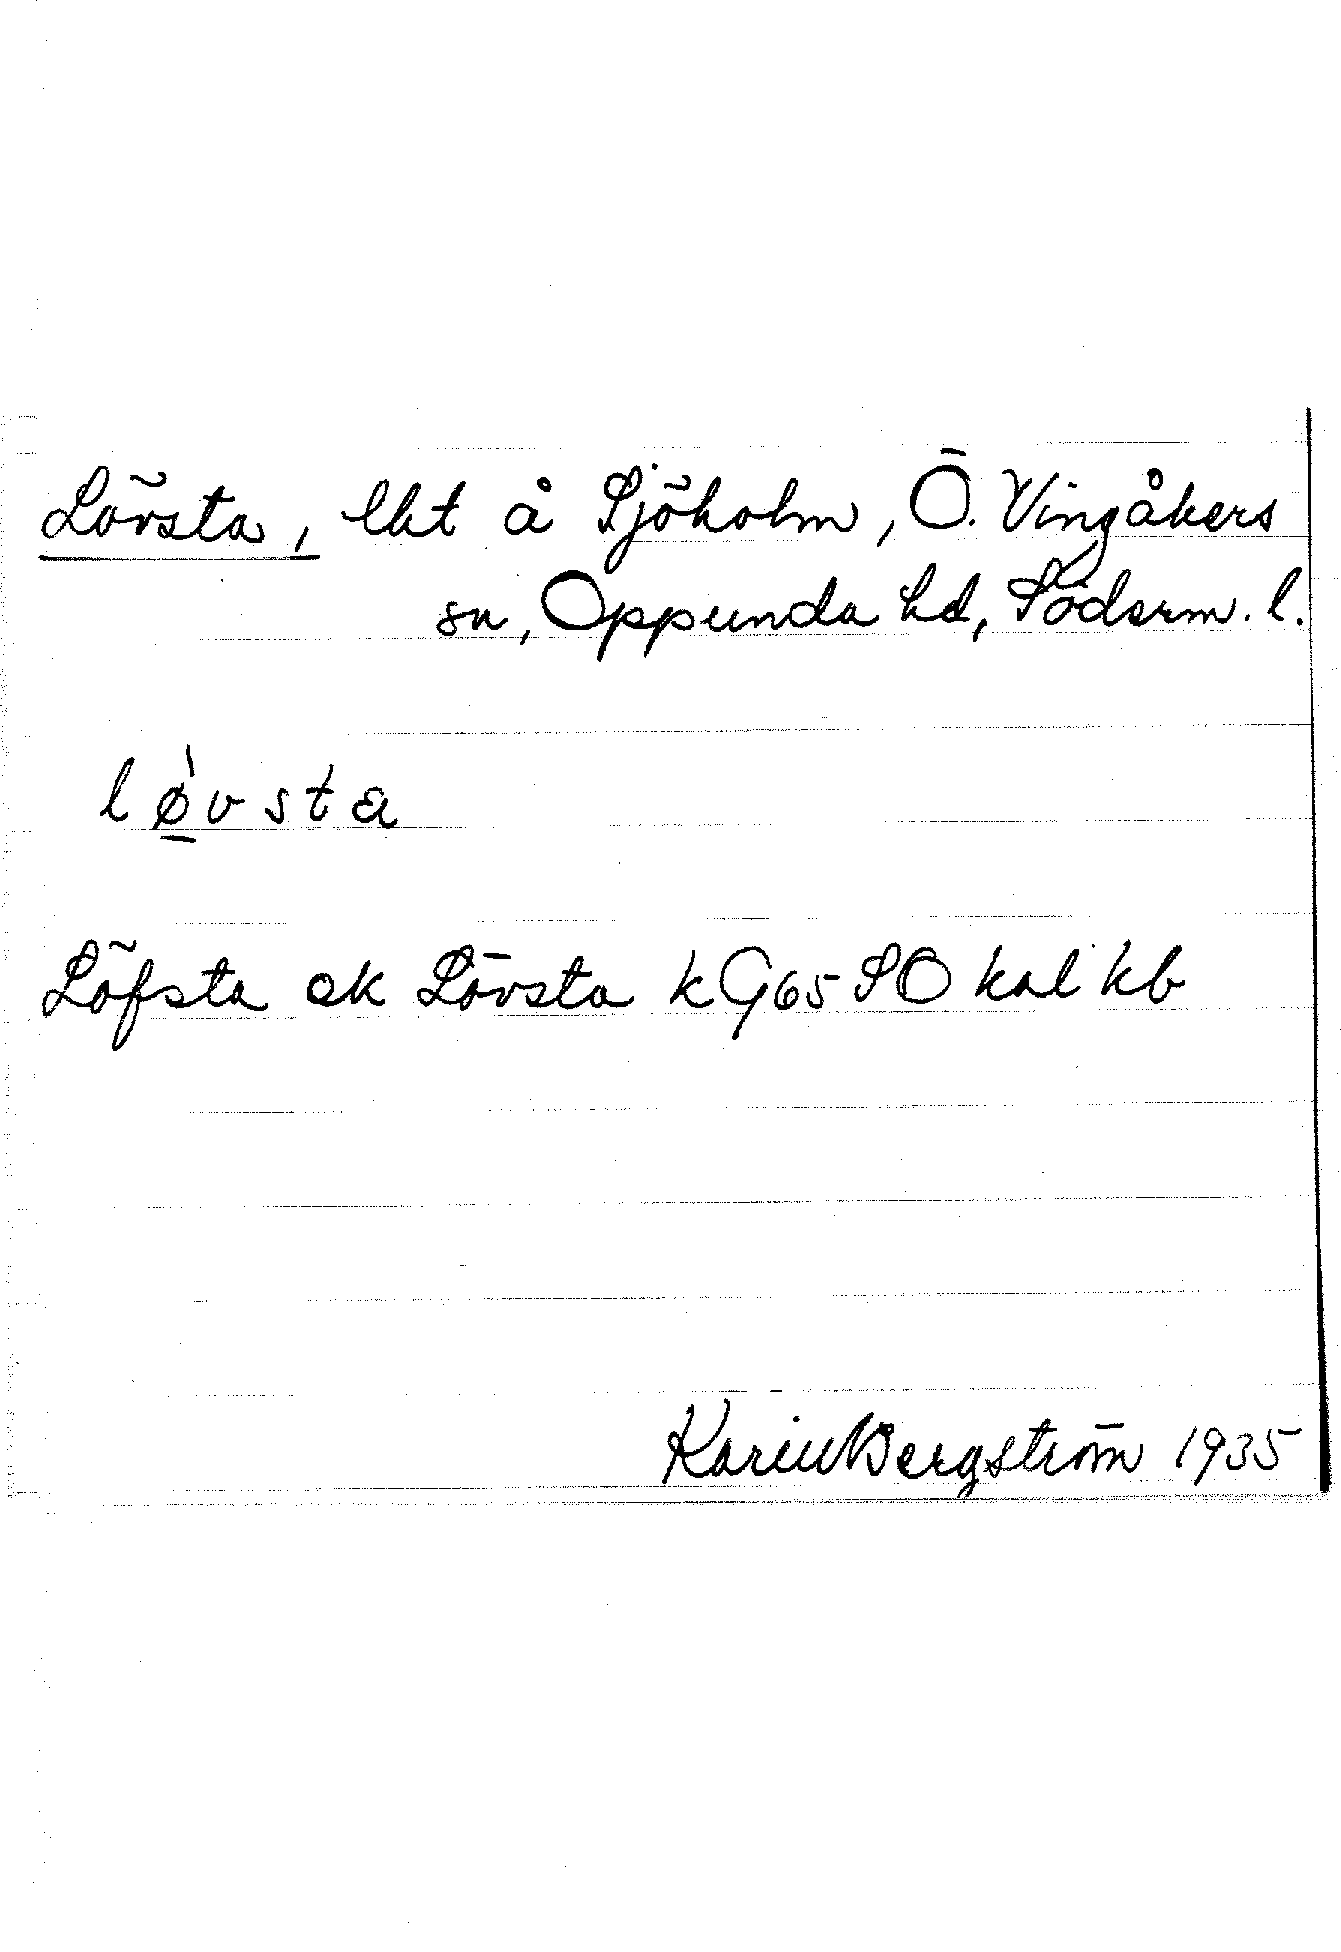 Lövsta, lht å Sjöholm, Ö. Vingåkers
sn, Oppunda hd, Söderm. l.
lø̀vsta
Löfsta ok Lövsta kG65 SO kal kb
Karin Bergström 1935